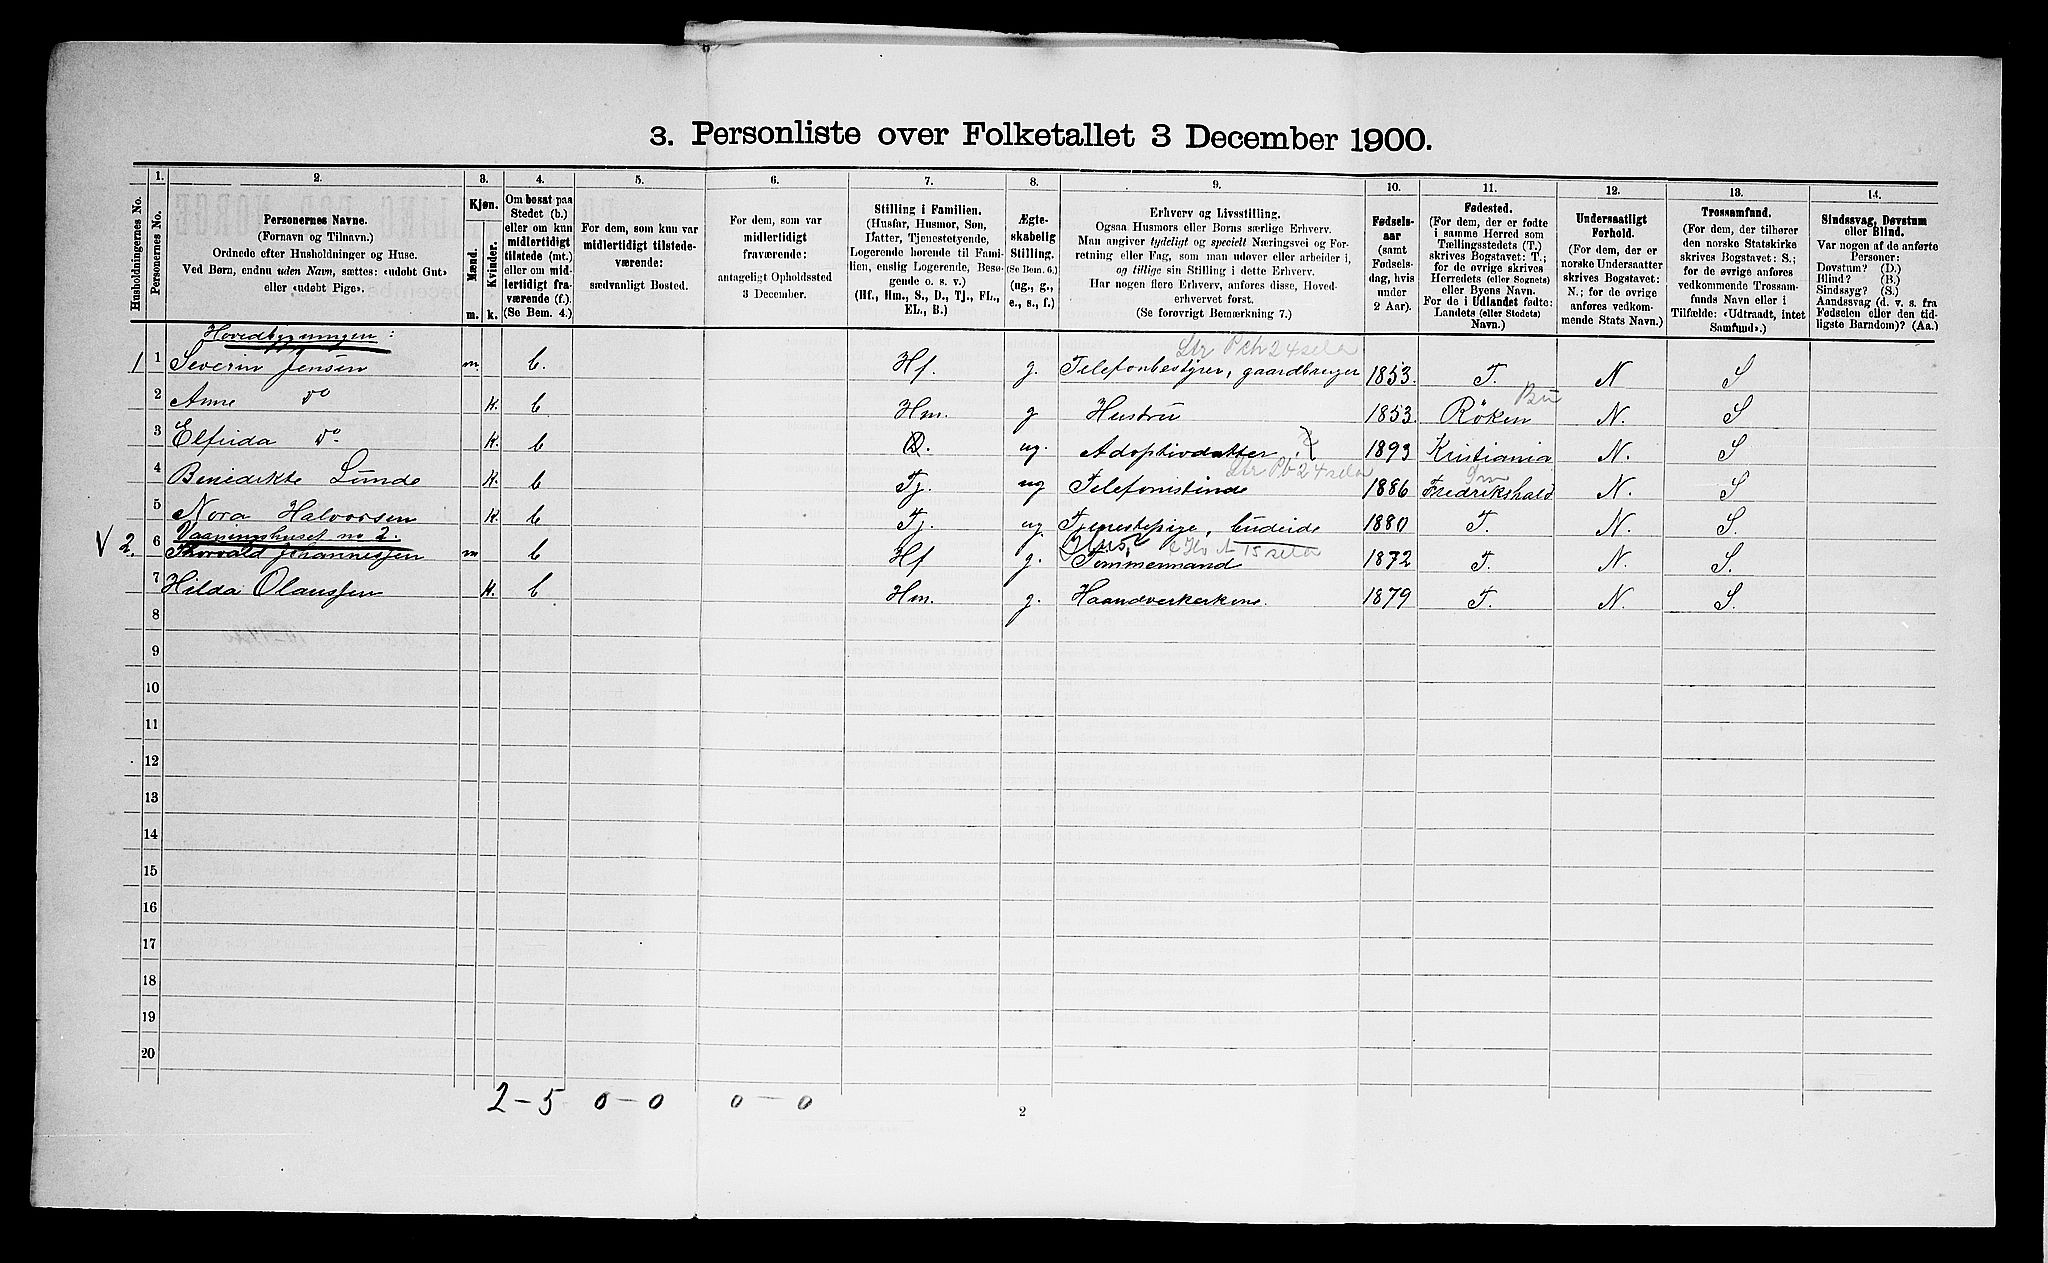 3. Personliste over Folketallet 3 December 1900.
Husholdningernes No.
1. Personernes No.
2. Personernes Navne.
(Fornavn og Tilnavn.)
Ordnede efter Husholdninger og Huse.
Ved Børn, endnu uden Navn, sættes: «udøbt Gut»
eller «udøbt Pige».
3. Kjøn.
Mænd. Kvinder.
m. k.
4. Om bosat paa
Stedet (b.)
eller om kun
midlertidigt
tilstede (mt.)
eller om mid-
lertidigt fra-
værende (f.).
(Se Bem. 4.)
5. For dem, som kun var
midlertidigt tilstede-
værende:
sædvanligt Bosted.
6. For dem, som var
midlertidigt
fraværende:
antageligt Opholdssted
3 December.
7. Stilling i Familien.
(Husfar, Husmor, Søn,
Datter, Tjenstetyende,
Logerende hørende til Fami-
lien, enslig Logerende, Besø-
gende o. s. v.)
(Hf., Hm., S., D., Tj., FL.,
EL., B.)
8. Ægte-
skabelig
Stilling.
(Se Bem. 6.)
(ug., g.,
e., s., f.)
9. Erhverv og Livsstilling.
Ogsaa Husmors eller Børns særlige Erhverv.
Man angiver tydeligt og specielt Næringsvei og For-
retning eller Fag, som man udøver eller arbeider i,
og tillige sin Stilling i dette Erhverv.
Har nogen flere Erhverv, anføres disse, Hoved-
erhvervet først.
(Se forøvrigt Bemærkning 7.)
10. Fødsels-
aar
(samt
Fødsels-
dag, hvis
under
2 Aar).
11. Fødested.
(For dem, der er fødte
i samme Herred som
Tællingsstedets (T.)
skrives Bogstavet: T.;
for de øvrige skrives
Herredets (eller Sognets)
eller Byens Navn.
For de i Udlandet fødte:
Landets (eller Stedets)
Navn.)
12. Undersaatligt
Forhold.
(For dem, der er
norske Undersaatter
skrives Bogstavet:
N.; for de øvrige
anføres vedkom-
mende Stats Navn.)
13. Trossamfund.
(For dem, der tilhører
den norske Statskirke
skrives Bogstavet: S.;
for de øvrige anføres
vedkommende Trossam-
funds Navn eller i
Tilfælde: «Udtraadt, intet
Samfund».)
14. Sindssvag, Døvstum
eller Blind.
Var nogen af de anførte
Personer:
Døvstum? (D.)
Blind? (B.)
Sindssyg? (S.)
Aandssvag (d. v. s. fra
Fødselen eller den tid-
ligste Barndom)? (Aa.)
Hovedbygningen:
1 1 Severin Jensen m. b. Hf. g. Telefonbestyrer, gaardbruger 1853. T. N S
2 Anne do k. b Hm. g Hustru 1853. Røken Bu N. S
3 Elfrida do. k. b D. ug. Adoptivdatter 1893 Kristiania N. S
4 Benedikte Lunde k. b Tj. ug Telefonistinde 1886 Fredrikshald N. S
5 Nora Halvorsen k. b Tj. ug. Tjenestepige, budeide 1880 T. N. S.
Vaaningshuset no 2.
V 2. 6 Thorvald Johannessen m b Hf g. Tømmermand 1872 T. N. S.
7 Hilda Olaussen k. b Hm. g. Haandverkerkone. 1879 T. N. S.
8
9
10
11
12
13
14
15
16
17
18
19
20
2-5 0-0 0-0
2